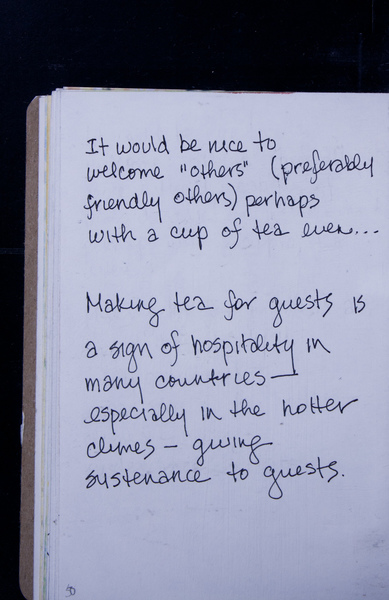 It would be nice to
welcome "others" (preferably
friendly others) perhaps
with a cup of tea even...
Making tea for guests is
a sign of hospitality in
many countries —
especially in the hotter
climes — giving
sustenance to guests.
50